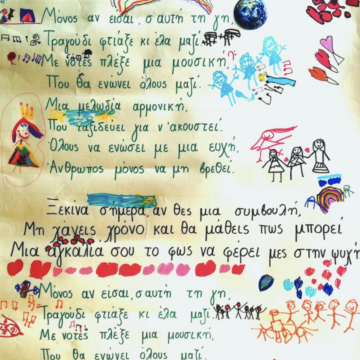 Μόνος αν είσαι, σ αυτή τη γη,
Τραγούδι φτιάξε κι έλα μαζί.
Με νότες πλέξε μια μουσική,
Που θα ενώνει όλους μαζί.
Μια μελωδία αρμονική,
Που ταξιδεύει για ν' ακουστεί.
Όλους να ενώσει με μια ευχή,
Άνθρωπος μόνος να μη βρεθεί.
Ξεκίνα σήμερα, αν θες μια συμβουλή,
Μη χάνεις χρόνο και θα μάθεις πως μπορεί
Μια αγκαλιά σου το φως να φέρει μες στην ψυχή
Μόνος αν είσαι, σ αυτή τη γη,
Τραγούδι φτιάξε κι έλα μαζί.
Με νότες πλέξε μια μουσική,
Που θα ενώνει όλους μαζί.